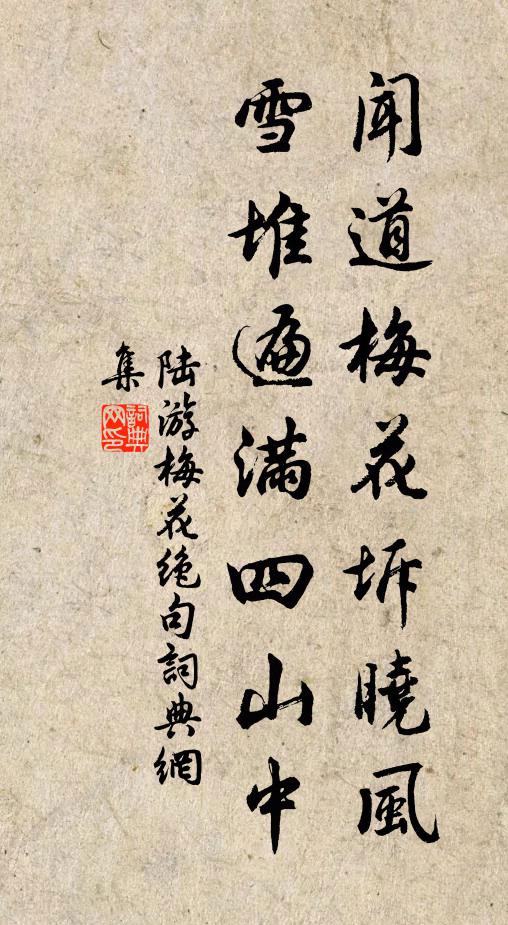 闻道梅花坼曉風
雪堆遍满四山中
陆游梅花绝句詞典網
集
詞典網印